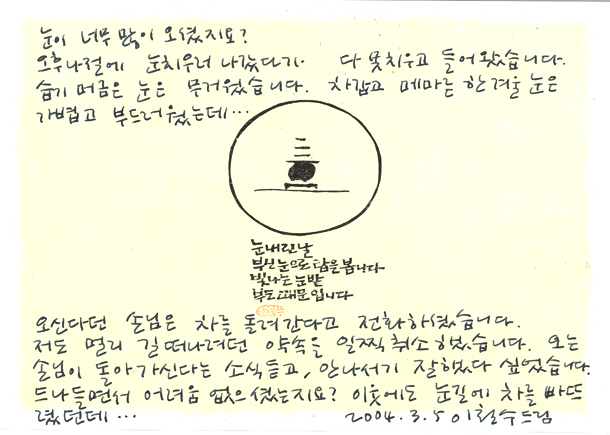 눈이 너무 많이 오셨지요?
오후나절에 눈치우러 나갔다가 다 못치우고 들어왔습니다.
습기 머금은 눈은 무거웠습니다. 차갑고 메마른 한겨울 눈은
가볍고 부드러웠는데...
눈내린날
부신 눈으로 탑을 봅니다
빛나는 눈밭
부도 때문입니다
오신다던 손님은 차를 돌려 간다고 전화하셨습니다.
저도 멀리 길떠나려던 약속을 일찍 취소했습니다. 오는
손님이 돌아가신다는 소식듣고, 안나서기 잘했다 싶었습니다.
드나들면서 어려움 없으셨는지요? 이웃에도 눈길에 차를 빠뜨
렸던데... 2004.3.5 이철수드림